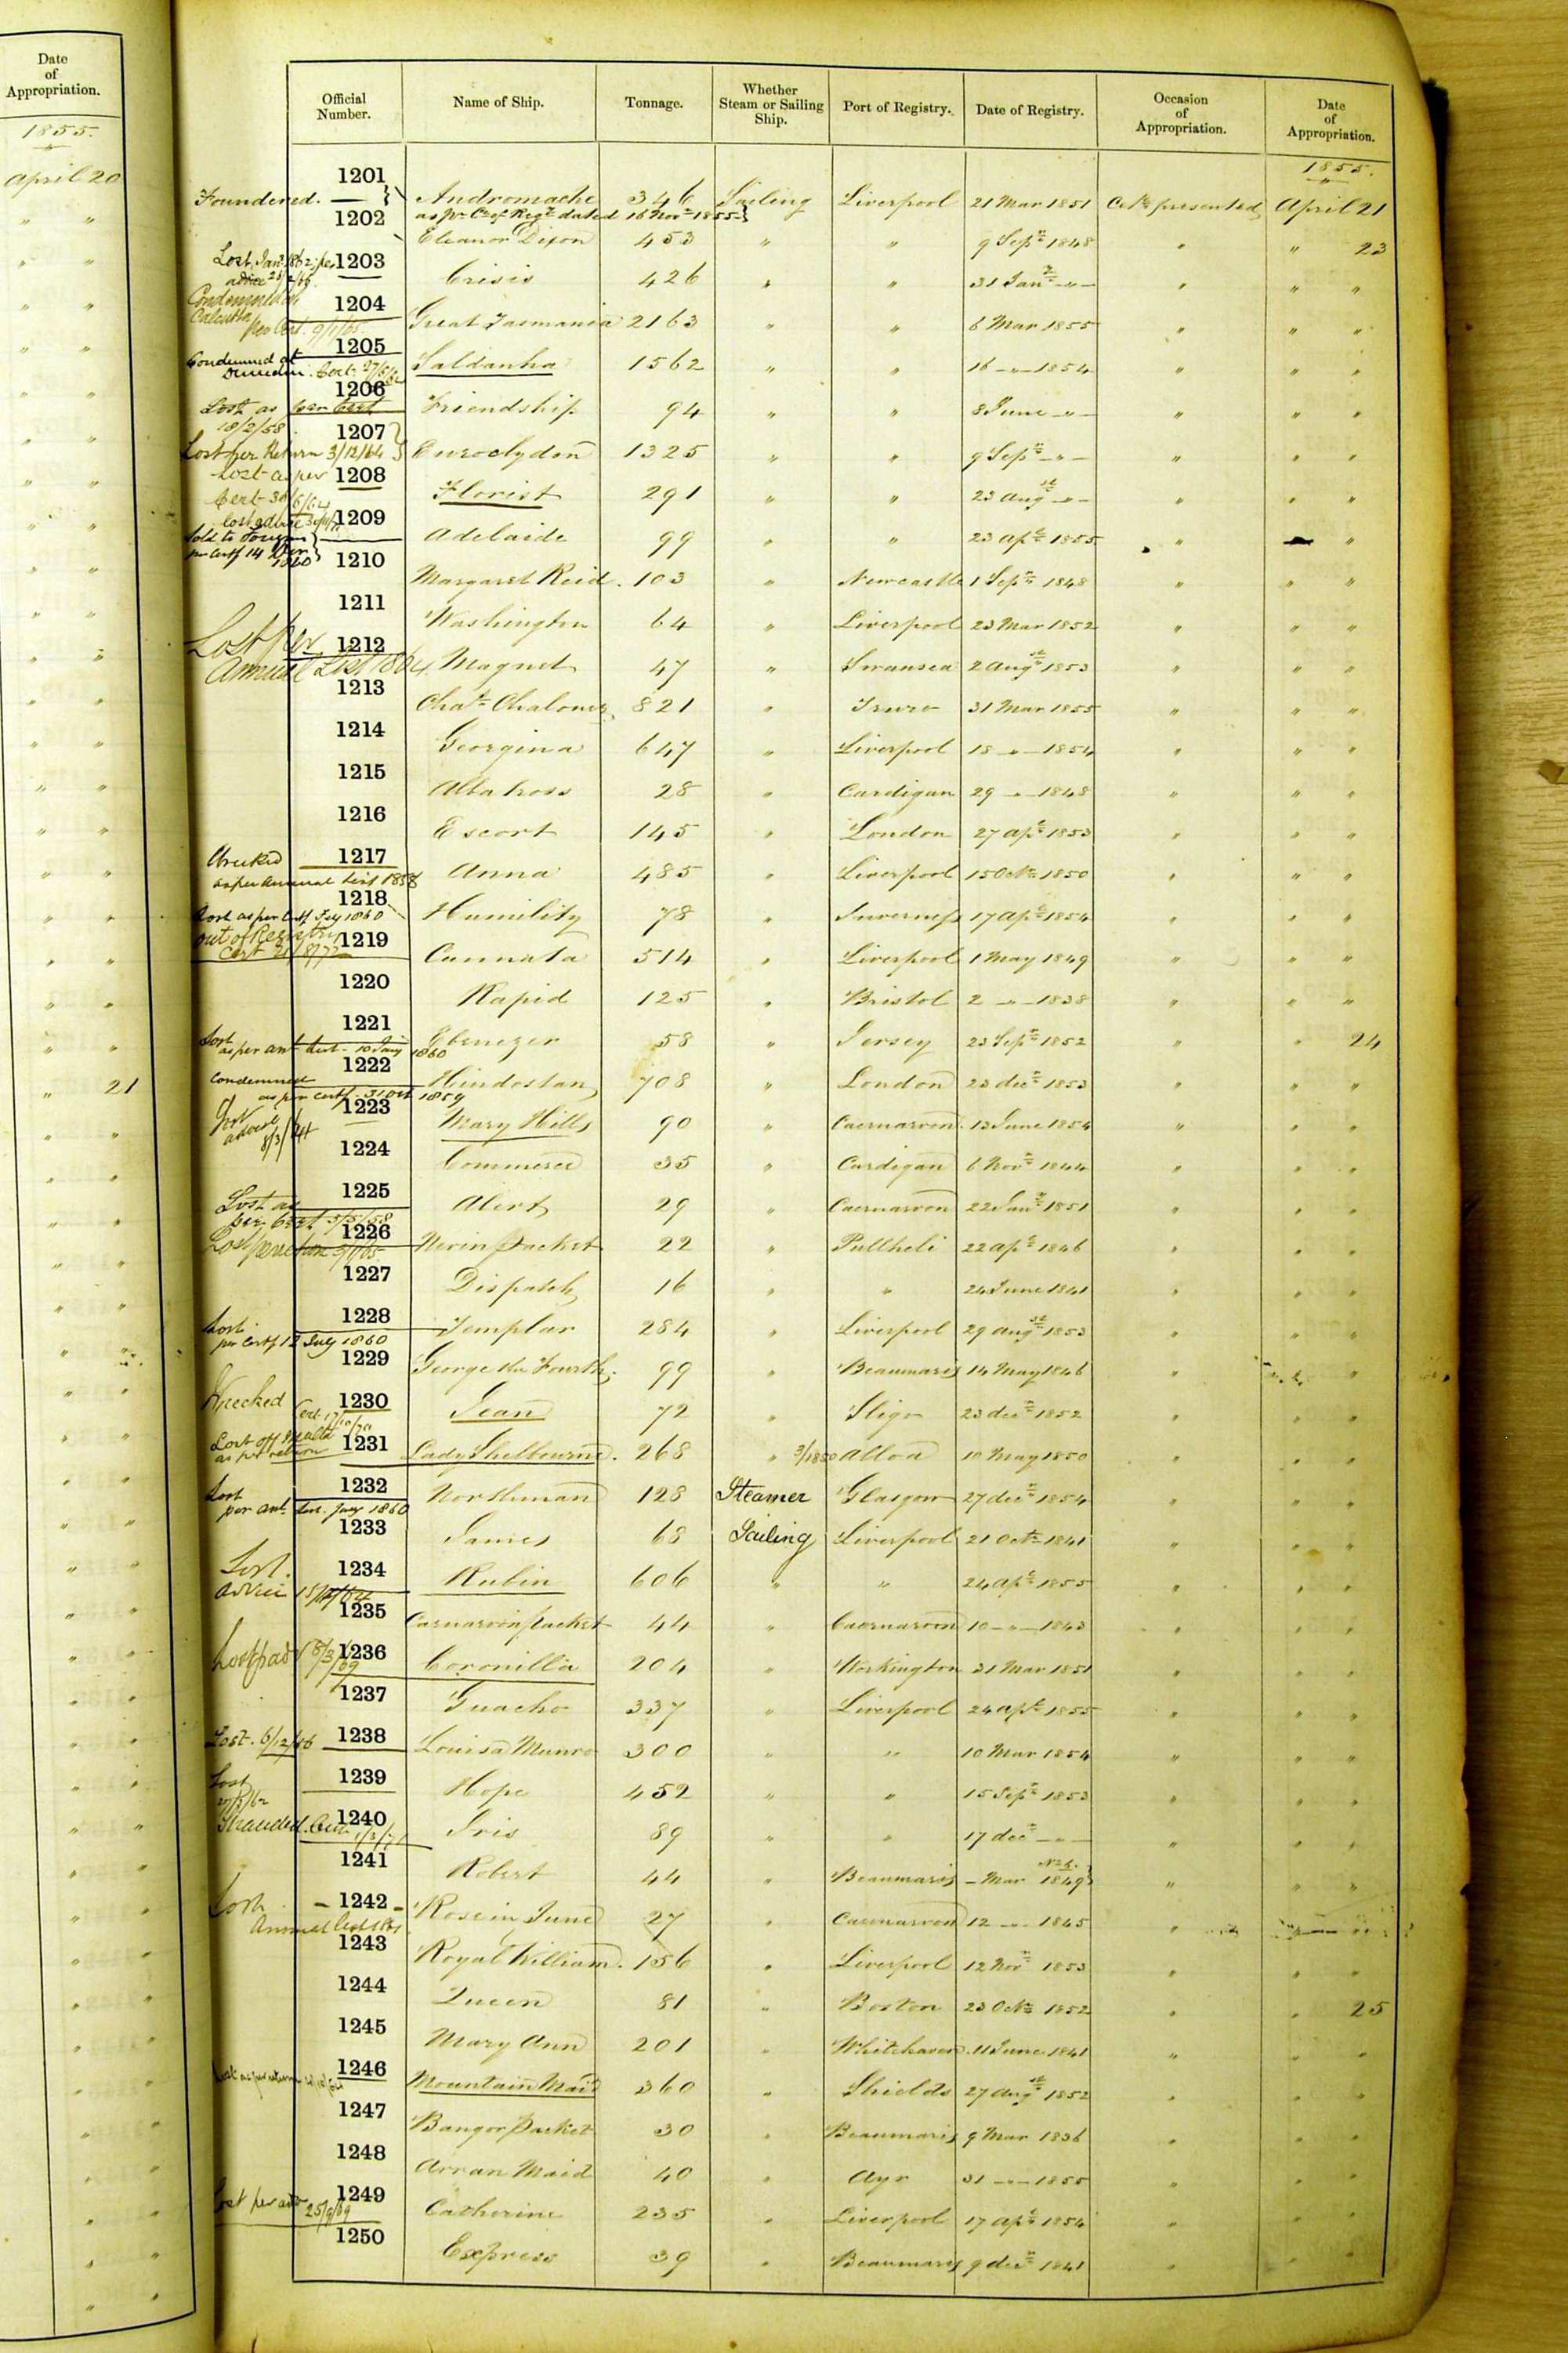 Date
of
Appropriation.
1855.
April 20
" "
21
Official Number. Name of Ship. Tonnage. Whether Steam or Sailing Ship. Port of Registry. Date of Registry. Occasion of Appropriation. Date of Appropriation.
1855.
Foundered. 1201 Andromache 346 Sailing Liverpool 21 Mar 1851 Cete presented April 21
as pr Ce of Regy dated 16 Novr 1855
1202 Eleanor Dixon 453 " " 9 Sepr 1848 " " 23
Lost, Jany 1862; per advice 1203 Crisis 426 " " 31 Jany " " " "
Condemned Calcutta per Cert. 9/1/65 1204 Great Tasmania 2163 " " 6 Mar 1855 " " "
Condemned at Dunedin. Cert. 1205 Saldanha 1562 " " 16 " 1854 " " "
Lost as per Cert 18/2/58 1206 Friendship 94 " " 8 June " " " "
Lost per Return 3/12/64 1207 Euroclydon 1325 " " 9 Sepr " " " "
Lost as per Cert 30/6/64 1208 Florist 291 " " 23 Augst " " " "
lost advice 1209 Adelaide 99 " " 23 Apl 1855 " " "
Sold to Foreign per Certf 14 1860
1210 Margaret Reid. 103 " Newcastle 1 Sepr 1848 " " "
1211 Washington 64 " Liverpool 23 Mar 1852 " " "
Lost per Annual List 1864 1212 Magnet 47 " Swansea 2 Augst 1853 " " "
1213 Chas Chaloner 821 " Truro 31 Mar 1855 " " "
1214 Georgina 647 " Liverpool 18 " 1854 " " "
1215 Albatross 28 " Cardigan 29 " 1848 " " "
1216 Escort 145 " London 27 Apl 1853 " " "
Wrecked as per Annual List 1858 1217 Anna 485 " Liverpool 15 Octr 1850 " " "
Lost as per Certf Feby 1860 1218 Humility 78 " Inverness 17 Apl 1854 " " "
Out of Registry Cert 1219 Cannata 514 " Liverpool 1 May 1849 " " "
1220 Rapid 125 " Bristol 2 " 1838 " " "
Lost as per ant List. 10 Jany 1860 1221 Ebenezer 58 " Jersey 23 Sepr 1852 " " 24
Condemned as per certf. 31 Oct 1859 1222 Hindostan 708 " London 23 decr 1853 " " "
advice 8/3/ 1223 Mary Hills 90 " Caernarvon 13 June 1854 " " "
1224 Commerce 35 " Cardigan 6 Novr 1844 " " "
Lost as per Cert 3/5/58 1225 Alert 29 " Caernarvon 22 Jany 1851 " " "
Lost per return 1226 Nevin Packet 22 " Pullheli 22 Apl 1846 " " "
1227 Dispatch 16 " " 24 June 1841 " " "
Lost per Certf 12 July 1860 1228 Templar 284 " Liverpool 29 Augst 1853 " " "
1229 George the Fourth. 99 " Beaumaris 14 May 1846 " " "
Wrecked Cert. 1230 Jean 72 " Sligo 23 decr 1852 " " "
Lost off Malta as per return 1231 Lady Shelbourne. 268 " 3/1850 Alloa 10 May 1850 " " "
Lost per ant. List. Jany 1860 1232 Northman 128 Steamer Glasgow 27 decr 1854 " " "
1233 James 68 Sailing Liverpool 21 Octr 1841 " " "
Lost. Advice 1234 Rubin 606 " " 24 Apl 1855 " " "
1235 Carnarvon packet 44 " Caernarvon 10 " 1843 " " "
Lost p adv 8/3/69 1236 Coronilla 204 " Workington 31 Mar 1851 " " "
1237 Guacho 337 " Liverpool 24 Apl 1855 " " "
Lost. 6/12/66 1238 Louisa Munro 300 " " 10 Mar 1854 " " "
Lost 1239 Hope 452 " " 15 Sepr 1853 " " "
Stranded. Cert. 1240 Iris 89 " " 17 decr " " " "
1241 Robert 44 " Beaumaris No 5. - Mar 1849 " " "
Lost Annual List 1242 Rose in June 27 " Caernarvon 12 " 1845 " " "
1243 Royal William. 156 " Liverpool 12 Novr 1853 " " "
1244 Queen 81 " Boston 23 Octr 1852 " " 25
1245 Mary Ann 201 " Whitehaven. 11 June 1841 " " "
Lost as per return 1246 Mountain Maid 360 " Shields 27 Augst 1852 " " "
1247 Bangor Packet 30 " Beaumaris 9 Mar 1836 " " "
1248 Arran Maid 40 " Ayr 31 " 1855 " " "
Lost per adv 25/9/69 1249 Catherine 235 " Liverpool 17 Apl 1854 " " "
1250 Express 39 " Beaumaris 9 decr 1841 " " "